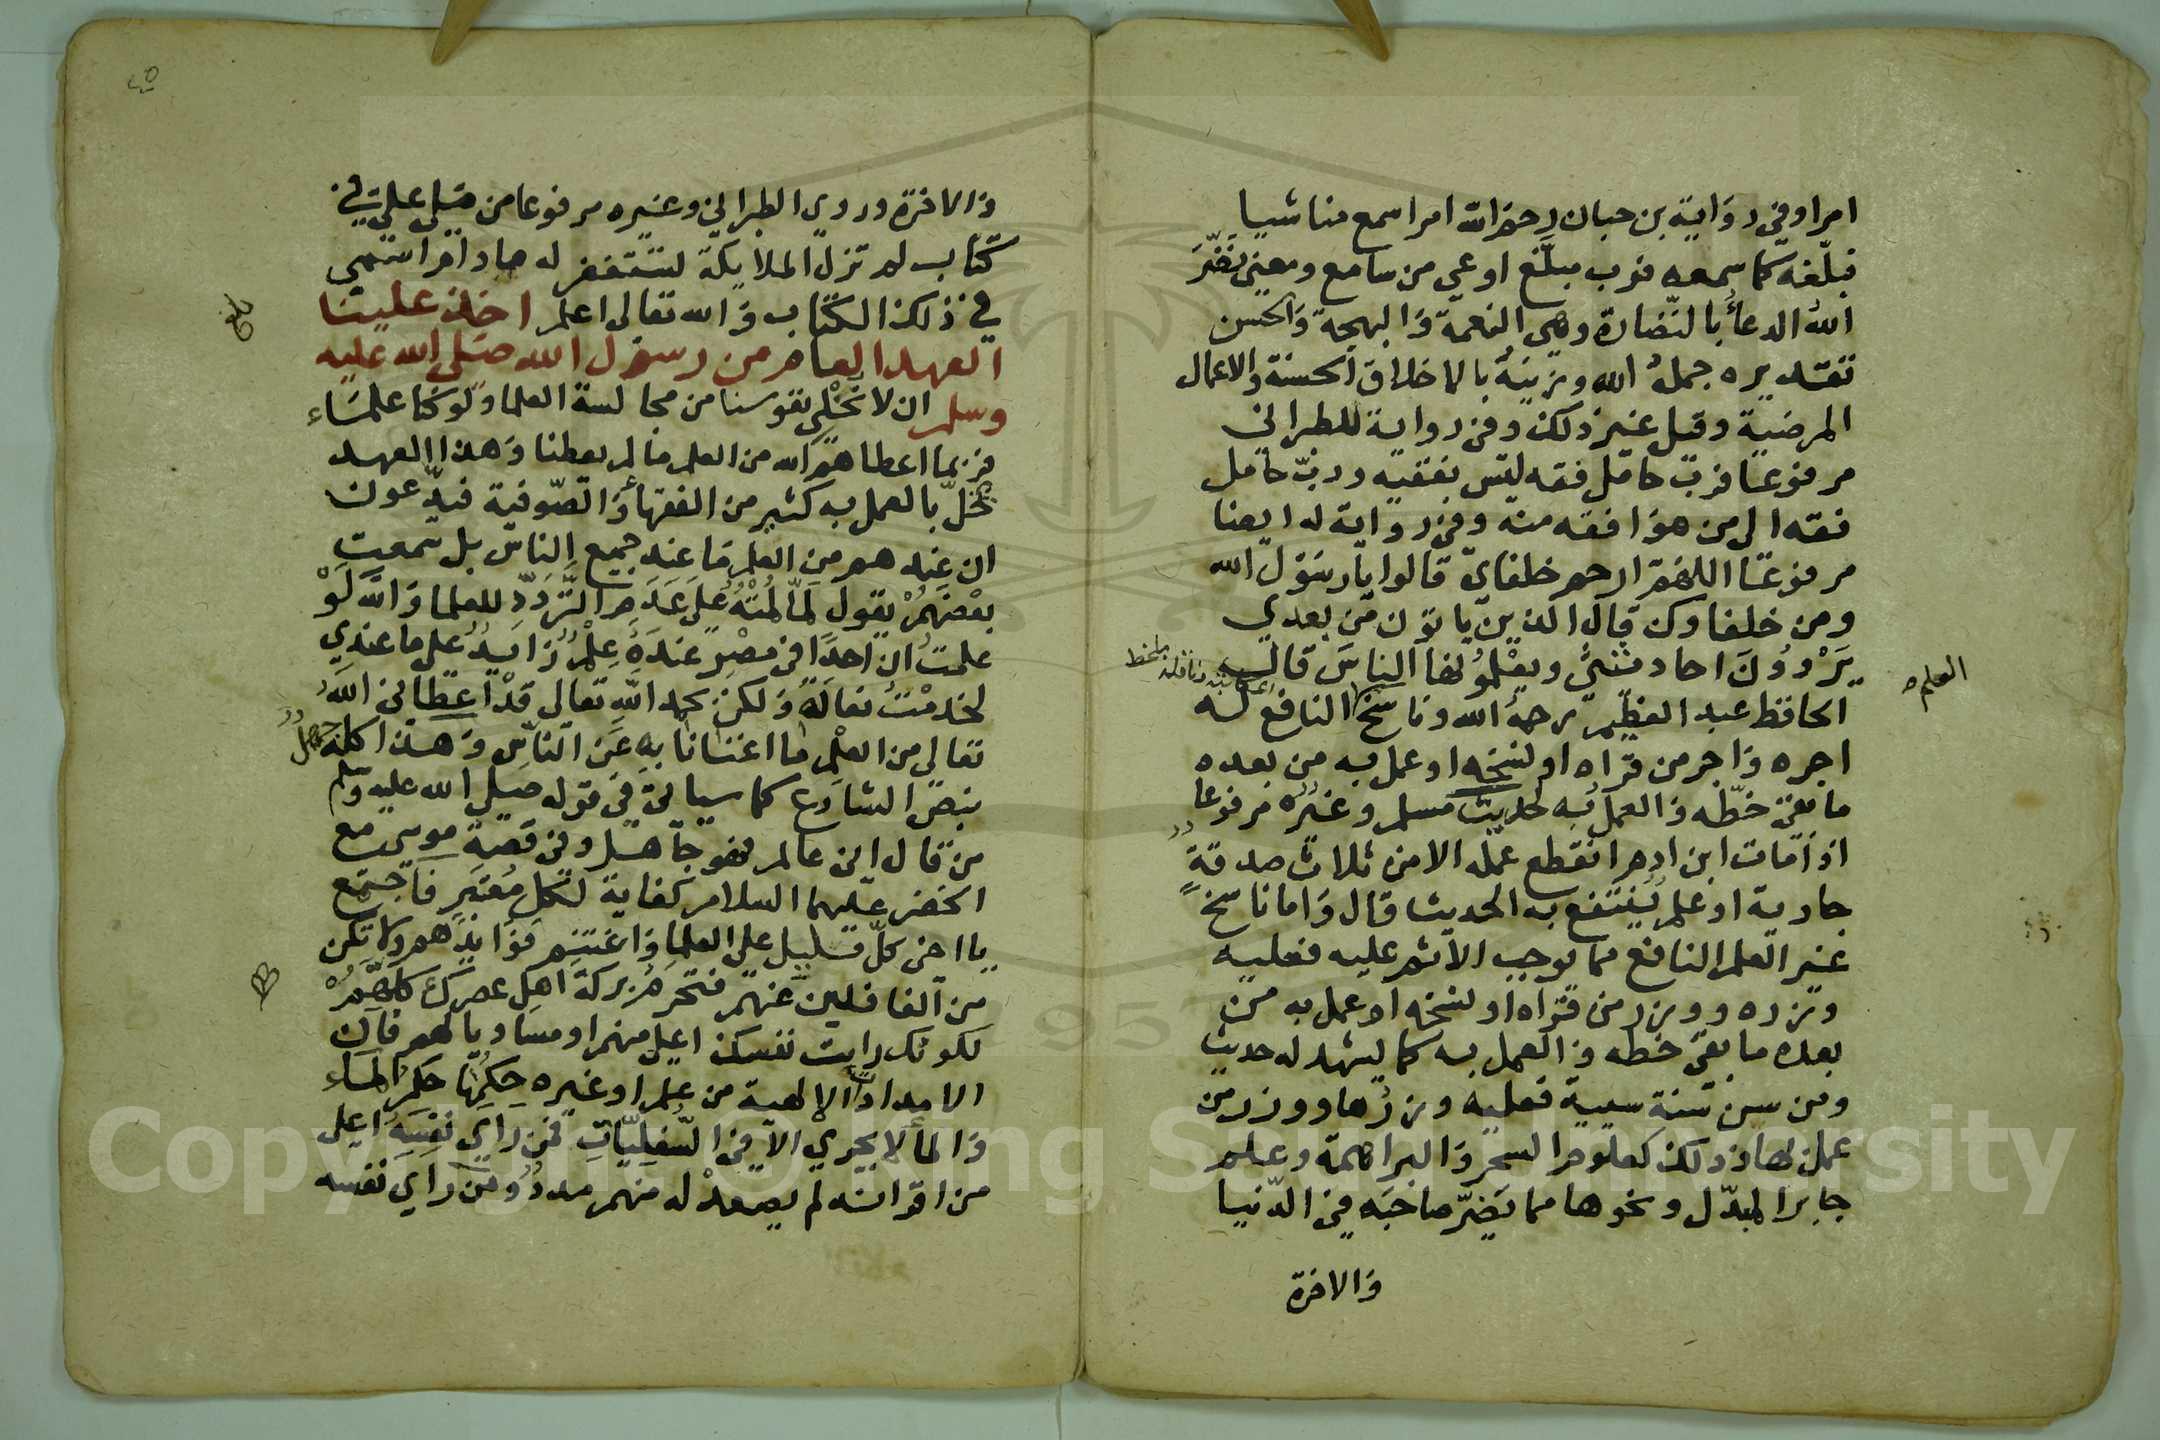 امرا وفي رواية بن حبان رحم الله امرا سمع منا شيا
فبلغه كما سمعه فرب مبلَّغ اوعي من سامع ومعنى نَضَّرَ
اللهُ الدعاُ بالنّضارة وهي النعمة وَالبهجة وَالحسن
تقديره جملهُ الله وزينهُ بالاخلاق الحسنة والاعمال
المرضية وقيل غير ذلك وفي رواية للطبراني
مرفوعًا فربّ حامل فقه ليس بفقيه وربّ حامل
فقه الى من هوَ افقه منه وفي رواية له ايضا
مرفوعًا اللهمّ ارحم خلفاي قالوا يا رسَوُل الله
ومن خلفاوك قال الذين ياتون من بعدي
يَرْدوُونَ احاديثي ويعْلموُنها الناسَ قال
الحافظ عبد العظيم رحمهُ الله وناسخ النافع له
العلم
اجره وَاجر من قراه او نسخه او عمل به من بعده
ما بقي خطّه وَالعمل به لحديث مسلم وغيرُه مرفوعا
اذا مات ابن ادم انقطع عمله الا من ثلاث صدقةٍ
جارية او علم يُنتفع به الحديث قال وَاما ناسخ
غير العلم النافع مما يوجب الاثم عليه فعليه
وزره ووزر من قراه او نسخه او عمل به من
بعده ما بقي خطه وَالعمل به كما يشهد له حديث
ومن سن سنة سيية فعليه وزرُها ووزر من
عمل بها وذلك كعلوم السحر وَالبراهمة وعلم
جابر المبدّل ونحوها مما يَضرّ صاحبَه في الدّنيا
وَالاخرة
وَالاخرة وروي الطبراني وغيره مرفوعا من صَلى عليّ في
كتاب لم تزل الملايكة تستغفر له ما دام اسمي
في ذلك الكتاب وَالله تعالى اعلم اخذ علينا
العهد العام من رسول الله صَلى الله عليه
وسلم ان لا نُخْلي نفوسنا من مجالسة العلما وَلو كنا علمَاء
فربما اعطاهم الله من العلم ما لم يعطنا وَهذا العهد
يخلّ بالعمل به كثير من الفقها وَالصّوفية فيدّعون
ان عندهم من العلم مَا عند جميع الناس بل سمعت
بعْضهُمْ يقول لمّا لمْتهُ عَلى عَدَم التَّرَدّدِ للعلما وَاللَّه لَوْ
علمتُ ان احدًا في مصْرٍ عندَهُ عِلْمٌ زايدٌ على ما عندي
لخدمْتُ نعالَهُ وَلكن بحمد الله تعالى قدْ اعطاني اللهُ
تعالى من العلم ما اغنانا بهِ عَن النّاسِ وَهذا كله جهلٌ
بنصّ الشارع كما سياتي في قوله صلى الله عليه وسلم
من قال اني عالم فهو جاهل وفي قصة موسى مع
الخضر عليهما السلام كفاية لكل مُعتبر فاجتمع
يا اخي كلّ قليل على العلما وَاغتنم فوَايدهم وَلا تكن
من الغافلين عنهم فتحرم بركة اهل عصرك كلهمُ
لكونك رايت نفسك اعلى منهم او مساويا لهم فان
الامدادات الالهية من علم او غيره حكمُها حكمُ المَاء
وَالماُ لا يجري الا في السُّفليّاتِ فمن رَاي نفسَهُ اعلى
من اقرانه لم يصعدْ له منهم مددٌ ومن رَاي نفسه